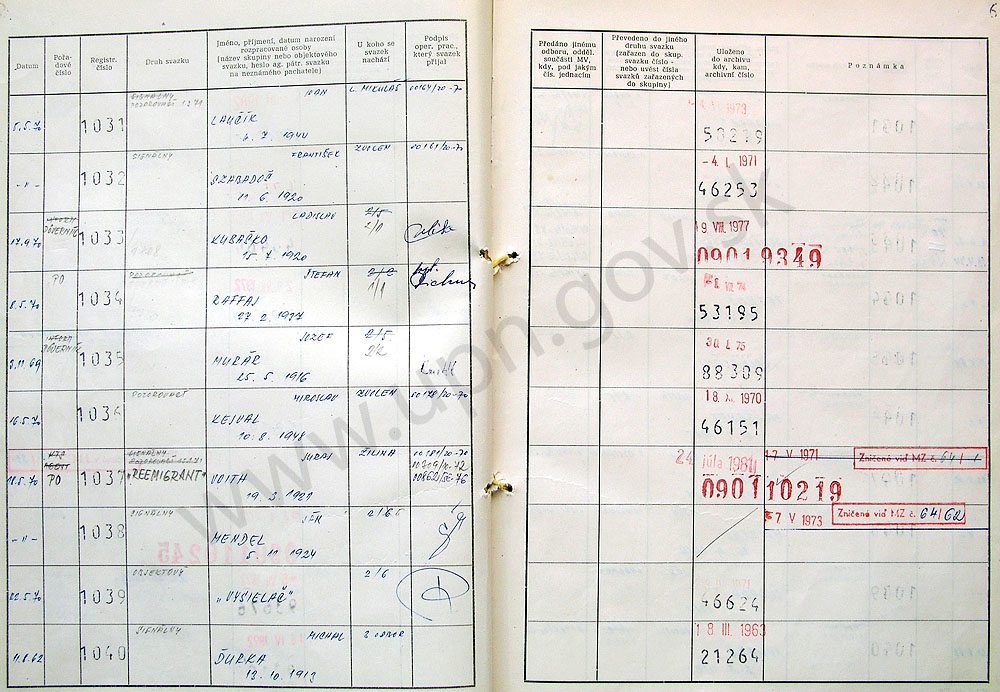 6
Datum
Pořa-
dové
číslo
Registr.
číslo
Druh svazku
Jméno, příjmení, datum narození
rozpracované osoby
(název skupiny nebo objektového
svazku, heslo ag. pátr. svazku
na neznámého pachatele)
U koho se
svazek
nachází
Podpis
oper. prac.,
který svazek
přijal
Předáno jinému
odboru, odděl.
součásti MV,
kdy, pod jakým
čís. jednacím
Převedeno do jiného
druhu svazku
(zařazen do skup.
svazku číslo -
nebo uvést čísla
svazků zařazených
do skupiny)
Uloženo
do archivu
kdy, kam,
archivní číslo
Poznámka
5.5.70 1031 SIGNÁLNY
POZOROVACÍ
L. MIKULÁŠ 00164/20-70
LAUČÍK
4. 7. 1944
1973
53219
-"- 1032 SIGNÁLNY FRANTIŠEK ZVOLEN 00161/20-70
SZABADOŠ
11. 6. 1920
-4. I. 1971
46253
DÔVERNÍK 1033 LADISLAV 2/5
2/1
KUBAČKO
15. 7. 1920
9 VIII. 1977
09019349
8.5.70 PO 1034 POZOROVACÍ ŠTEFAN
1/1
RAFFAJ
27. 2. 1937
53195
3.11.69 DÔVERNÍK 1035 JOZEF 2/5
2/2
MURÁR
25. 5. 1916
30. I. 75
88309
16.5.70 1036 POZOROVACÍ MIROSLAV ZVOLEN 00178/20-70
KEJVAL
10. 8. 1948
18. X. 1970
46151
PO 1037 SIGNÁLNY
"REEMIGRANT" JURAJ ŽILINA 00181/20-70
VOITH
19. 3. 1921
24. júla 1981
17 V. 1971 Zničené viď MZ č. 64/1
090110219
-"- 1038 SIGNÁLNY JÁN 2/65
MENDEL
5. 11. 1924
7 V 1973 Zničené viď MZ č. 64/62
22.5.70 1039 OBJEKTOVÝ 2/6
„VYSIELAČ"
46624
11.8.62 1040 SIGNÁLNY MICHAL 3 ODBOR
ĎURKA
13. 10. 1913
18. III. 1963
21264
www.upn.gov.sk